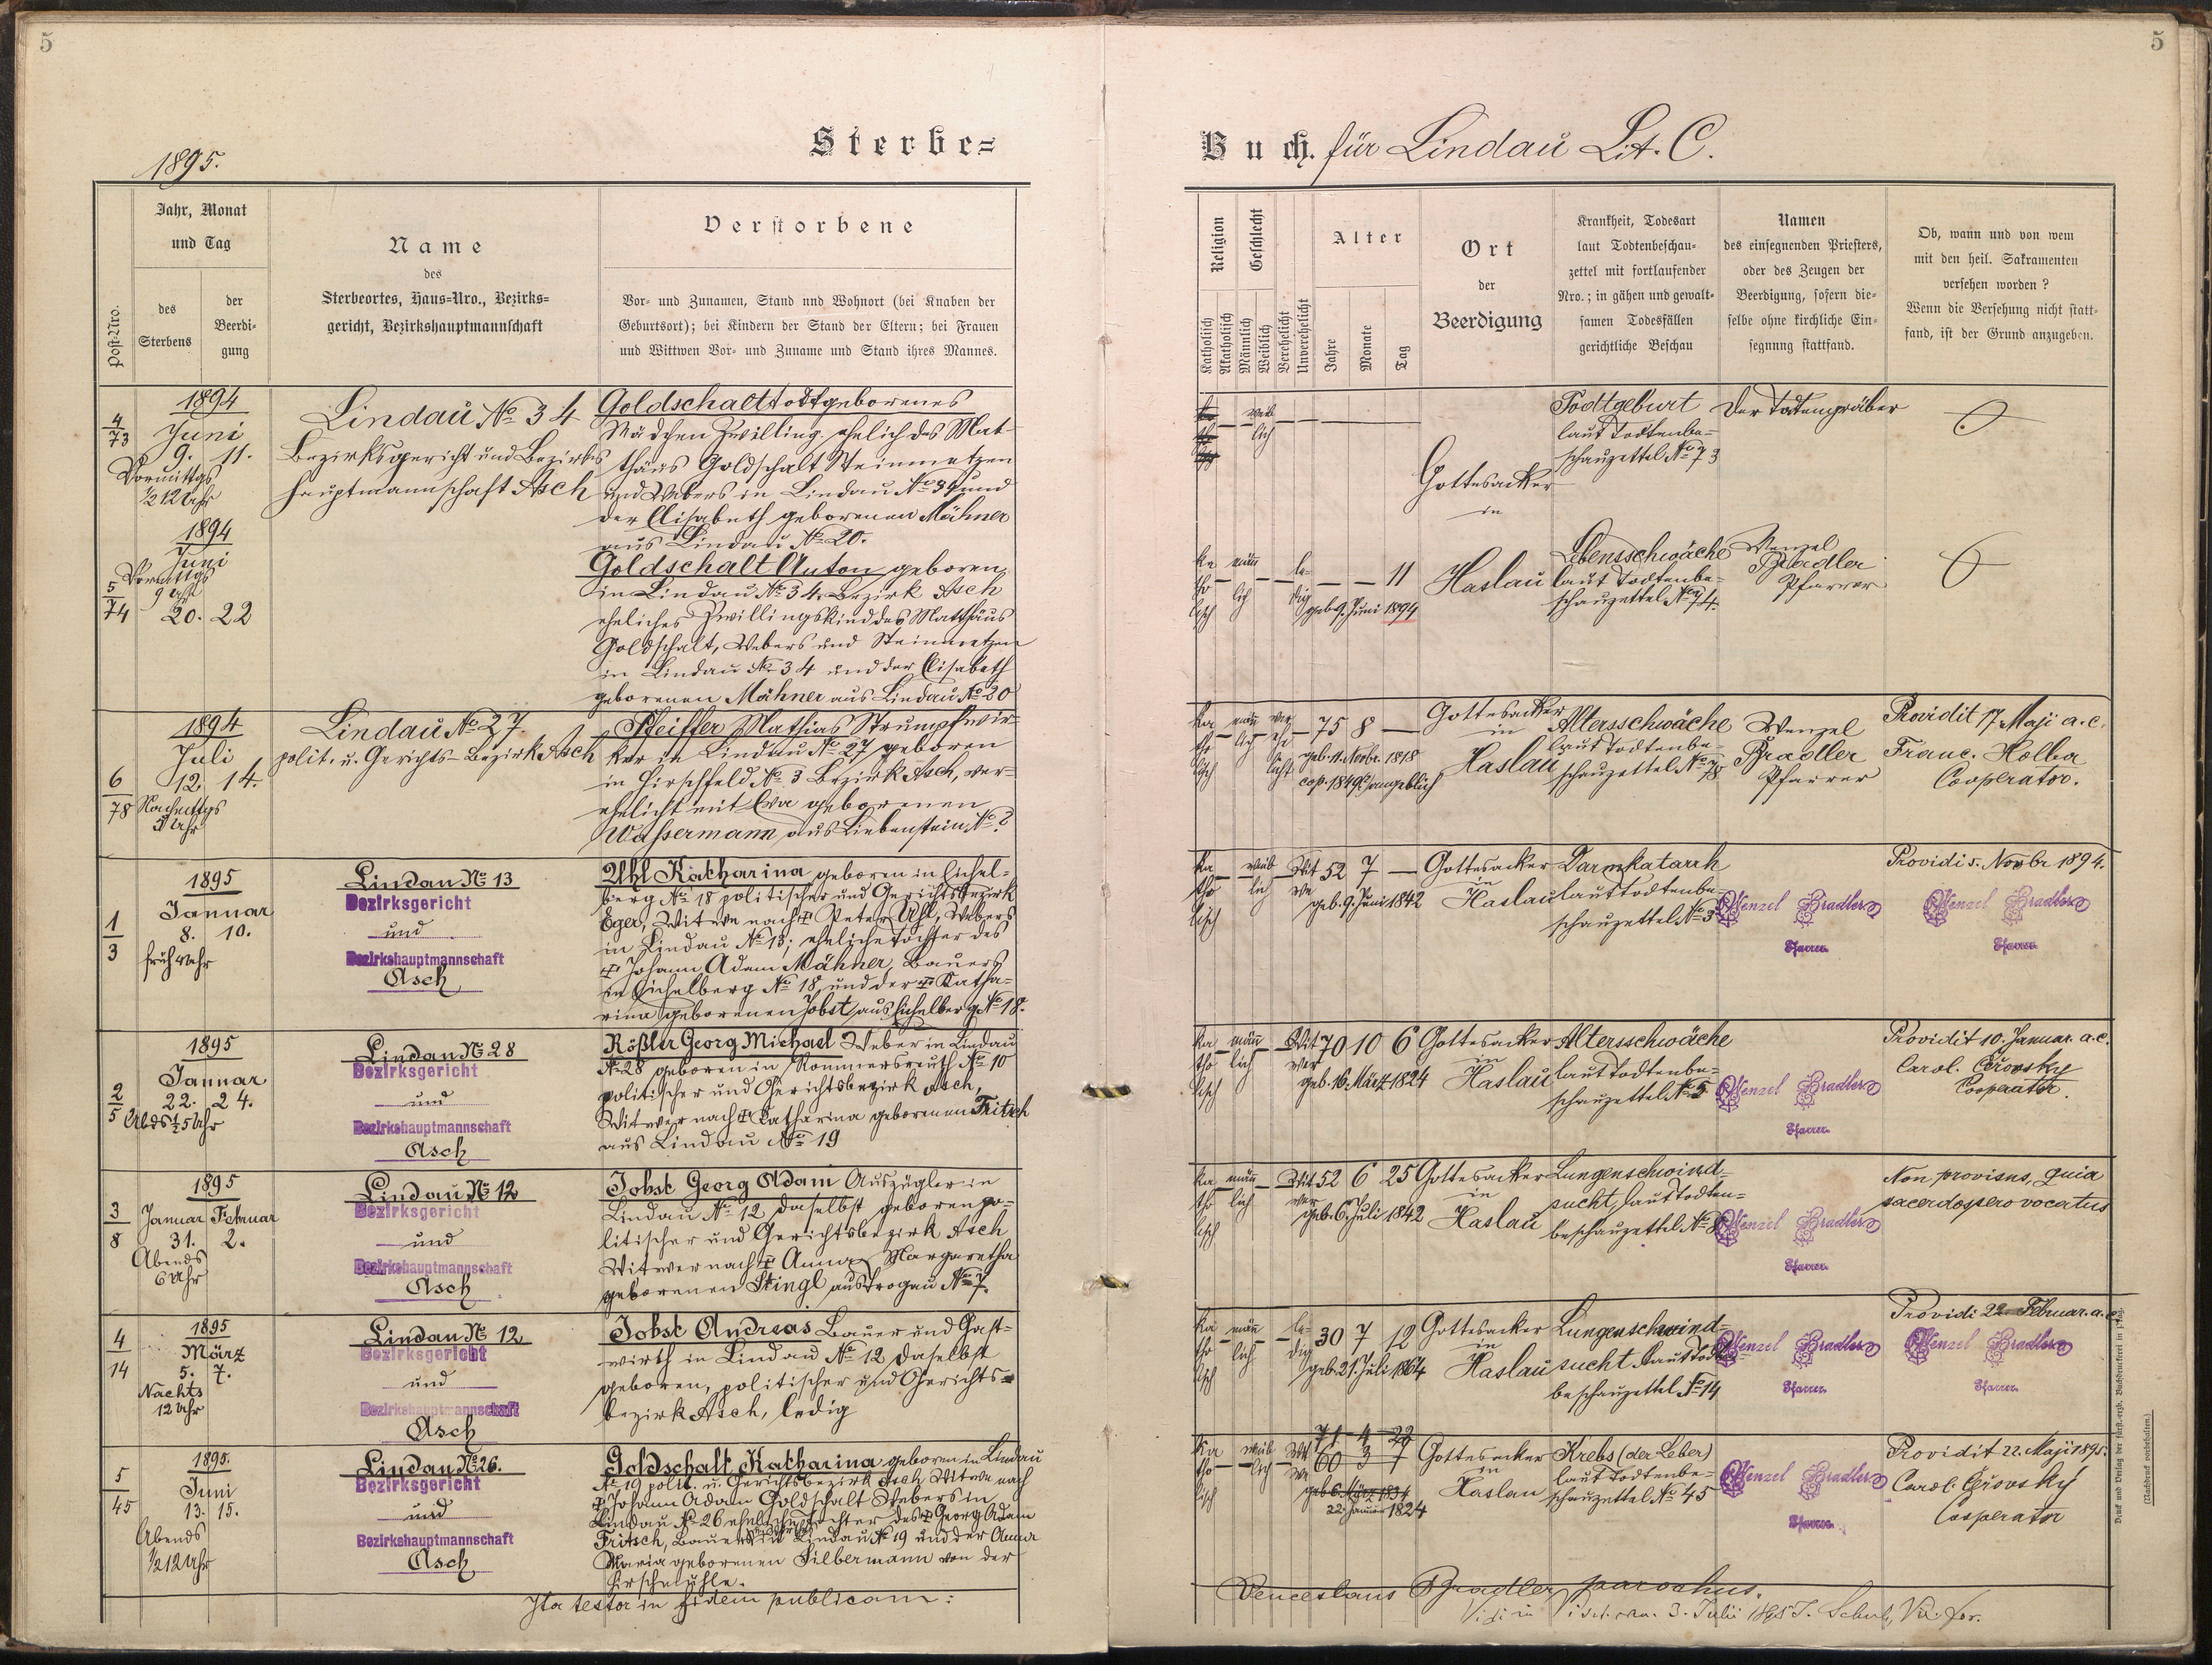 5
5
Sterbe=
Buch. für Lindau Lit. C.
1895.
Post-Nro.
Jahr, Monat
und Tag
des
Sterbens
der
Beerdi-
gung
Name
des
Sterbeortes, Haus-Nro., Bezirks-
gericht, Bezirkshauptmannschaft
Verstorbene
Vor- und Zunamen, Stand und Wohnort (bei Knaben der
Geburtsort); bei Kindern der Stand der Eltern; bei Frauen
und Wittwen Vor- und Zuname und Stand ihres Mannes.
Religion
Katholisch
Akatholisch
Geschlecht
Männlich
Weiblich
Verehelicht
Unverehelicht
Alter
Jahre
Monate
Tag
Ort
der
Beerdigung
Krankheit, Todesart
laut Todtenbeschau-
zettel mit fortlaufender
Nro.; in gähen und gewalt-
samen Todesfällen
gerichtliche Beschau
Namen
des einsegnenden Priesters,
oder des Zeugen der
Beerdigung, sofern die-
selbe ohne kirchliche Ein-
segnung stattfand.
Ob, wann und von wem
mit den heil. Sakramenten
versehen worden?
Wenn die Versehung nicht statt-
fand, ist der Grund anzugeben.
4
73
1894
Juni
9. 11.
Vormittgs
½12 Uhr
Lindau No 34
Bezirksgericht und Bezirks
hauptmannschaft Asch
Goldschalt todtgeborenes
Mädchen Zwilling ehelich des Mat-
thäus Goldschalt Steinmetzen
und Webers in Lindau No 34 und
der Elisabeth geborenen Mähner
aus Lindau No 20.
weib
lich
Gottesacker
in
Todtgeburt
laut Todtenbe-
schauzettel No 73
Der Todtengräber
5
74
1894
Juni
Vormittgs
9 Uhr
20. 22
Goldschalt Anton geboren
in Lindau No 34 Bezirk Asch
eheliches Zwillingskind des Matthäus
Goldschalt, Webers und Steinmetzen
in Lindau No 34 und der Elisabeth
geborenen Mähner aus Lindau No 20
Ka
tho
lisch
männ
lich
le-
dig
— — 11
geb. 9. Juni 1894
Haslau
Lebensschwäche
laut Todtenbe-
schauzettel No 74.
Wenzel
Bradler
Pfarrer
6
78
1894
Juli
12. 14.
Nachmttgs
5 Uhr
Lindau No 27.
polit. u. Gerichts-Bezirk Asch
Pfeiffer Mathias Strumpfwir-
ker in Lindau No 27 geboren
in Hirschfeld No 3 Bezirk Asch, ver-
ehelicht mit Eva geborenen
Wassermann aus Liebenstein No ?
Ka
tho
lisch
männ
lich
ver
ehe
licht
75 8 —
geb. 11. Novbr. 1818
cop. 1849 (?) angeblich
Gottesacker
in
Haslau
Altersschwäche
laut Todtenbe-
schauzettel No 78
Wenzel
Bradler
Pfarrer
Providit 17 Maji a. c.
Franc. Holba
Cooperator.
1
3
1895
Januar
8. 10.
früh 4 Uhr
Lindau No 13
Bezirksgericht
und
Bezirkshauptmannschaft
Asch
Uhl Katharina geboren in Eichel-
berg No 18 politischer und Gerichtsbezirk
Eger, Witwe nach † Peter Uhl, Webers
in Lindau No 13; eheliche Tochter des
† Johann Adam Mähner, Bauers
in Eichelberg No 18 und der † Katha-
rina geborenen Jobst aus Eichelberg No 18.
Ka
tho
lisch
weib
lich
Wit
we
52 7 —
geb. 9. Juni 1842
Gottesacker
in
Haslau
Darmkatarrh
laut Todtenbe-
schauzettel No 3
Wenzel Bradler
Pfarrer.
Providi 5. Novbr 1894.
Wenzel Bradler
Pfarrer.
2
5
1895
Januar
22. 24.
Abds ½ 5 Uhr
Lindau No 28
Bezirksgericht
und
Bezirkshauptmannschaft
Asch
Rößler Georg Michael Weber in Lindau
No 28 geboren in Rommersreuth No 10
politischer und Gerichtsbezirk Asch,
Witwer nach † Katharina geborenen Fritsch
aus Lindau No 19
Ka
tho
lisch
männ
lich
Wit
wer
70 10 6
geb. 16. März 1824
Gottesacker
in
Haslau
Altersschwäche
laut Todtenbe-
schauzettel No 5
Wenzel Bradler
Pfarrer.
Providit 10. Januar. a. c.
Carol.
Cooperator.
3
8
1895
Januar Februar
31. 2.
Abends
6 Uhr
Lindau No 12
Bezirksgericht
und
Bezirkshauptmannschaft
Asch
Jobst Georg Adam Auszügler in
Lindau No 12 daselbst geboren po-
litischer und Gerichtsbezirk Asch
Witwer nach † Anna Margaretha
geborenen Stingl aus Trogau No 7.
Ka
tho
lisch
männ
lich
Wit
wer
52 6 25
geb. 6. Juli 1842
Gottesacker
in
Haslau
Lungenschwind-
sucht, laut Todten-
beschauzettel No 8
Wenzel Bradler
Pfarrer.
Non provisus, quia
sacerdos sero vocatus
4
14
1895
März
5. 7.
Nachts
12 Uhr
Lindau No 12
Bezirksgericht
und
Bezirkshauptmannschaft
Asch
Jobst Andreas Bauer und Gast-
wirth in Lindau No 12 daselbst
geboren, politischer und Gerichts-
bezirk Asch, ledig
Ka
tho
lisch
männ
lich
le-
dig
30 7 12
geb. 21. Juli 1864
Gottesacker
in
Haslau
Lungenschwind-
sucht laut Todten-
beschauzettel No 14
Wenzel Bradler
Pfarrer.
Providi 22. Februar. a. c.
Wenzel Bradler
Pfarrer.
5
45
1895.
Juni
13. 15.
Abends
½12 Uhr
Lindau No 26.
Bezirksgericht
und
Bezirkshauptmannschaft
Asch
Goldschalt Katharina geboren in Lindau
No 19 polit. u. Gerichtsbezirk Asch Witwe nach
† Johann Adam Goldschalt Webers in
Lindau No 26 eheliche Tochter des † Georg Adam
Fritsch, Bauers in Lindau No 19 und der Anna
Maria geborenen Silbermann von der
Hirschmühle.
Ka
tho
lisch
weib
lich
Wit
we
71 4 22
60 3 7
geb. 6. März 1834
22. Januar 1824
Gottesacker
in
Haslau
Krebs (der Leber)
laut Todtenbe-
schauzettel No 45
Wenzel Bradler
Pfarrer.
Providit 22. Maji 1895.
Carol.
Cooperator
Ita testor in fidem publicam:
Venceslaus Bradler parochus.
Vidi in 3. Julii 1895 J.
Druck und Verlag der fürst.-erzb. Buchdruckerei in Prag.
(Nachdruck vorbehalten.)